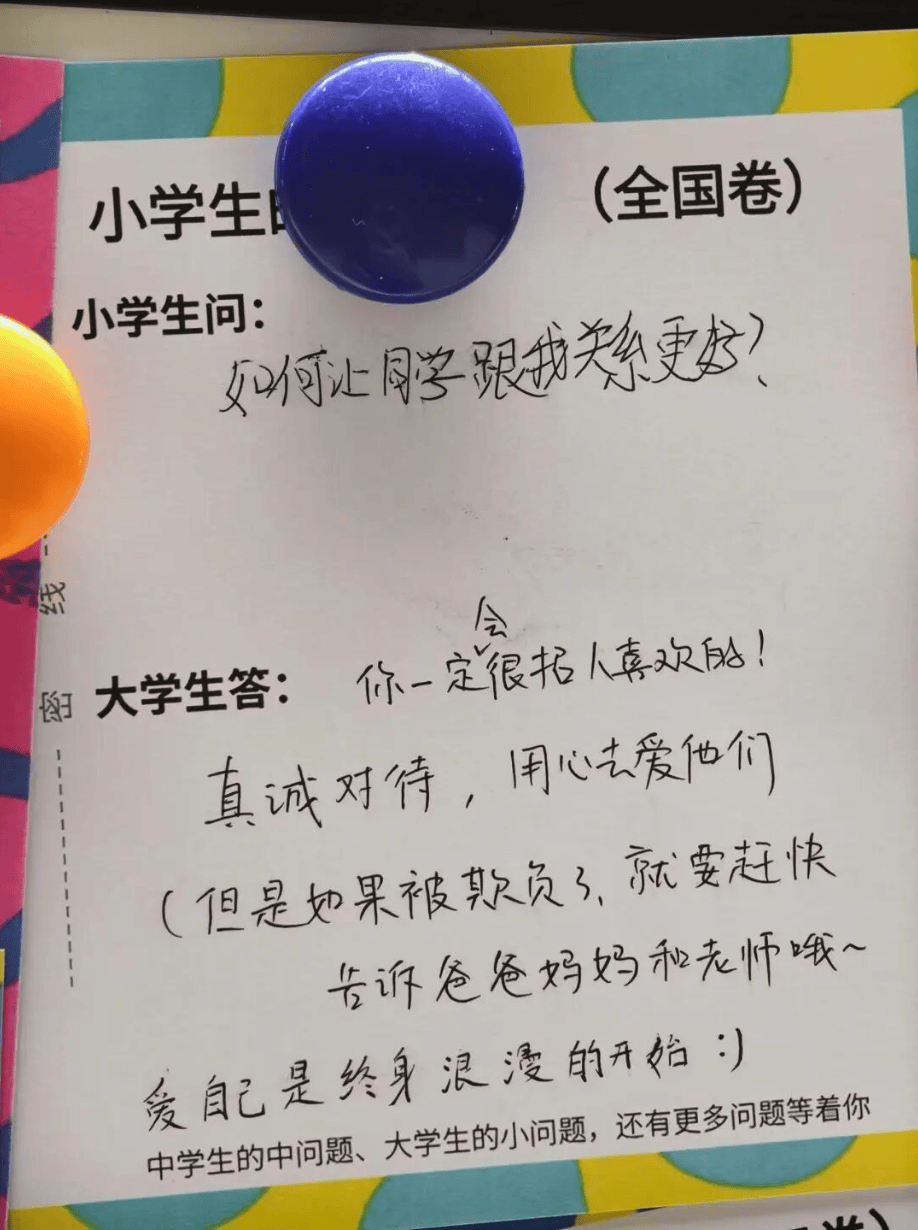 小学生
（全国卷）
小学生问：
如何让同学跟我关系更好？
会
大学生答：
你一定很招人喜欢的！
真诚对待，用心去爱他们
（但是如果被欺负了、就要赶快
告诉爸爸妈妈和老师哦～
爱自己是终身浪漫的开始：）
中学生的中问题、大学生的小问题，还有更多问题等着你
线
密
卷）